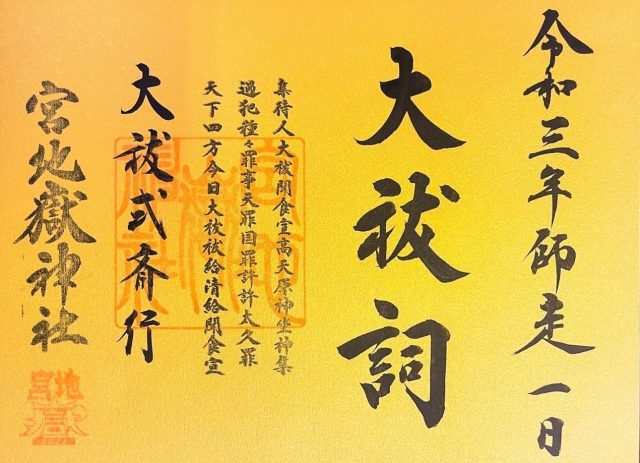 令和三年師走一日
大祓詞
集待人大祓聞食宣高天原神坐神集
過犯種々罪事天罪国罪許許太久罪
天下四方今日大祓祓給清給聞食宣
大祓式斉行
宮地嶽神社